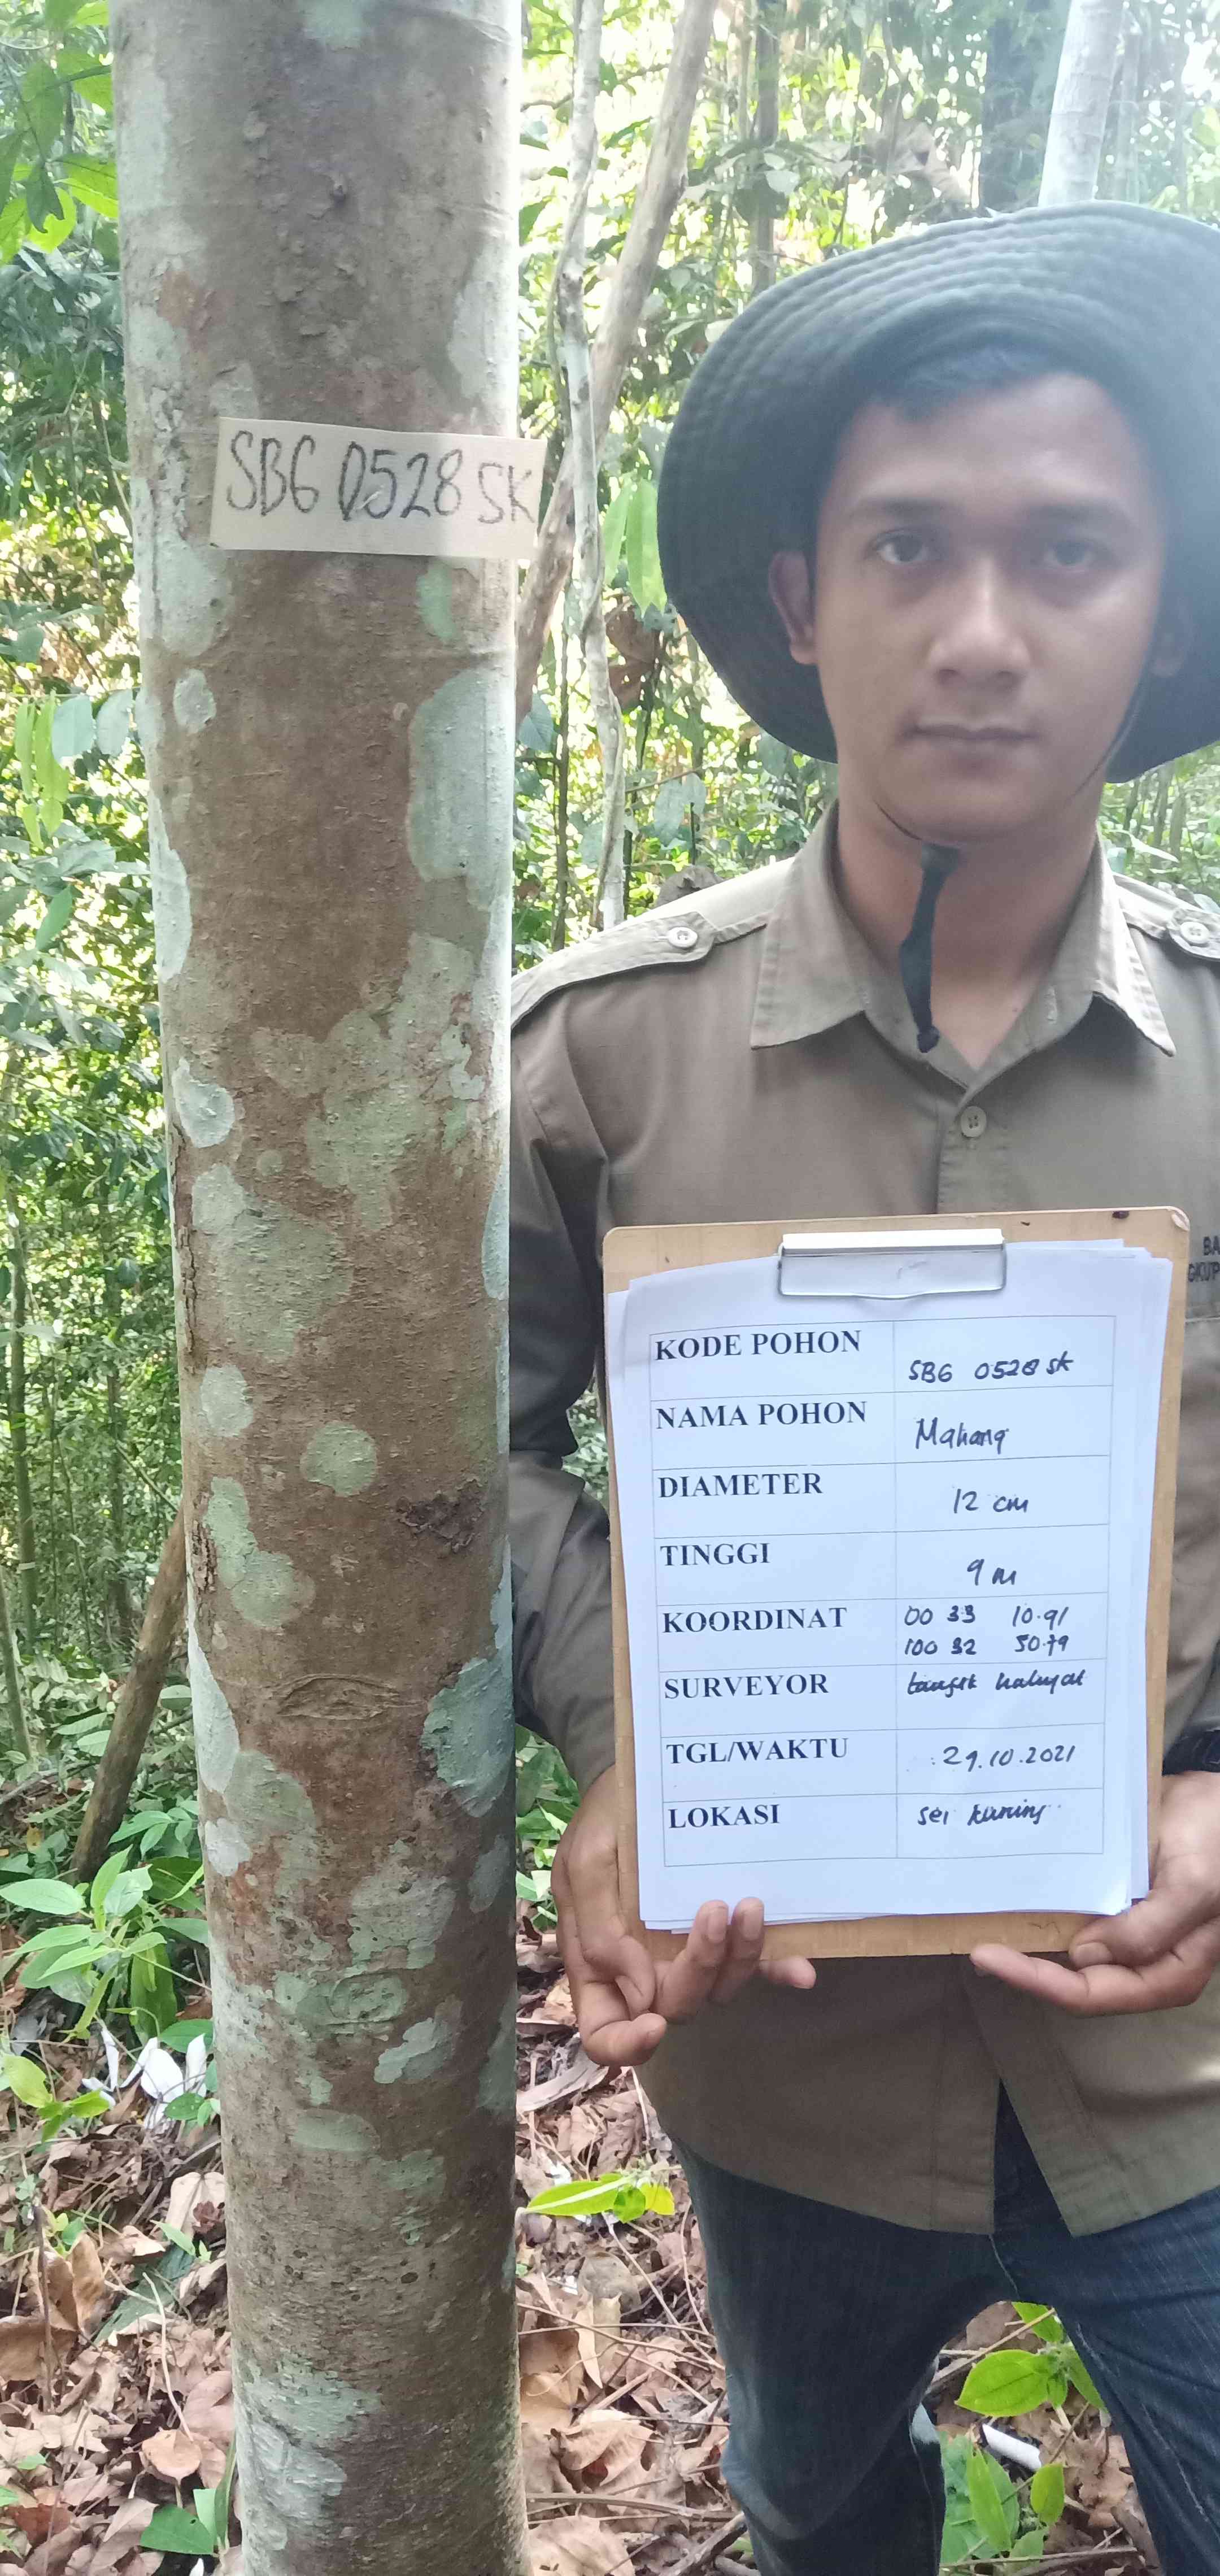 SBG 0528 SK
KODE POHON SBG 0528 SK
NAMA POHON Mahang
DIAMETER 12 cm
TINGGI 9 m
KOORDINAT 00 33 10.91
100 32 50.79
SURVEYOR taufik
TGL/WAKTU 29.10.2021
LOKASI sei kuning
BA
GKUP